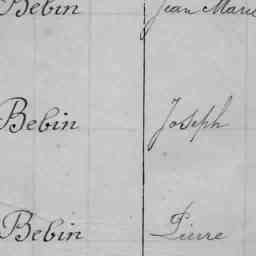 Bebin Jean Marie
Bebin Joseph
Bebin Pierre